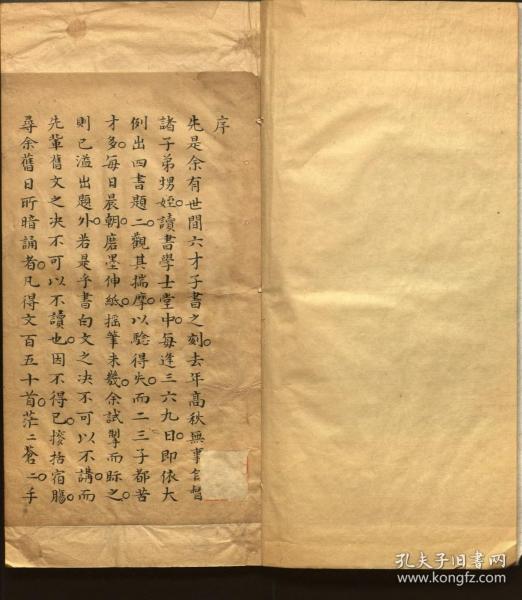 序
先是余有世間六才子書之刻去年高秋無事自督
諸子弟甥姪讀書學士堂中每逢三六九日即依大
例出四書題二觀其揣摩以驗得失而二三子都苦
才多每日晨朝磨墨伸紙搖筆未幾余試掣而眎之
則已溢出題外若是乎書白文之决不可以不講而
先輩舊文之决不可以不讀也因不得已搜括宿腸
尋余舊日所暗誦者凡得文百五十首茫二蒼二手
孔夫子旧书网
www.kongfz.com